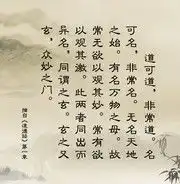 道可道，非常道。名
可名，非常名。无名天地
之始。有名万物之母。故
常无欲以观其妙。常有欲
以观其徼。此两者同出而
异名，同谓之玄。玄之又
玄，众妙之门。
摘自《道德经》第一章